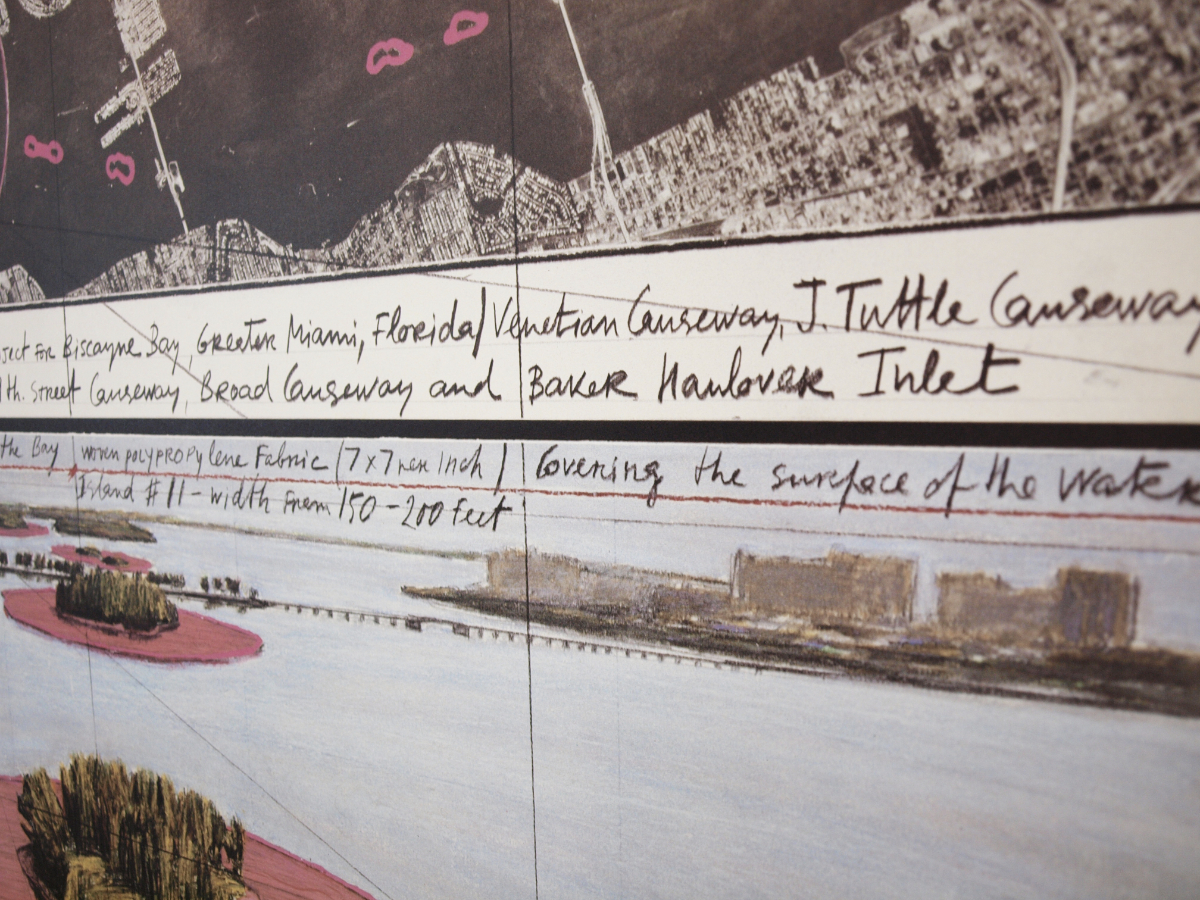 ject for Biscayne Bay, Greater Miami, Florida/Venetian Causeway, J. Tuttle Causeway
th. Street Causeway, Broad Causeway and Baker Haulover Inlet
the Bay woven polypropylene Fabric (7x7 per inch) Covering the surface of the water
Island #11 - width from 150-200 feet